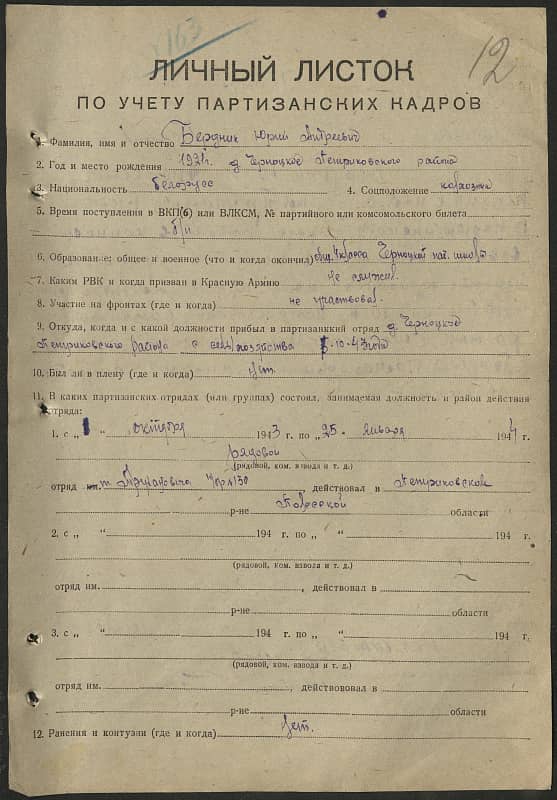 163
12
ЛИЧНЫЙ ЛИСТОК
ПО УЧЕТУ ПАРТИЗАНСКИХ КАДРОВ
1. Фамилия, имя и отчество Бердник Юрий Андреевич
2. Год и место рождения д. Черноцкое Петриковского района
3. Национальность Белорусс 4. Соцположение колхозник
5. Время поступления в ВКП(б) или ВЛКСМ, № партийного или комсомольского билета
б/п
6. Образование: общее и военное (что и когда окончил) общ. 4 класса Черноцкой нач. школы
7. Каким РВК и когда призван в Красную Армию не служил.
8. Участие на фронтах (где и когда) не участвовал.
9. Откуда, когда и с какой должности прибыл в партизанкий отряд д. Черноцкое
Петриковского района с сельхозяйства 10-43 года
10. Был ли в плену (где и когда) нет.
11. В каких партизанских отрядах (или группах) состоял, занимаемая должность и район действия
отряда:
1. с „ “ октября 1943 г. по „25“ января 1944 г.
рядовой
(рядовой, ком. взвода и т. д.)
отряд , действовал в Петриковском
р-не Полесской области
2. с „ “ 194 г. по „ “ 194 г.
(рядовой, ком. взвола и т. д.)
отряд им. , действовал в
р-не области
3. с „ “ 194 г. по „ “ 194 г.
(рядовой, ком. взвода и т. д.)
отряд им. , действововал в
р-не области
12. Ранения и контузии (где и когда) нет.